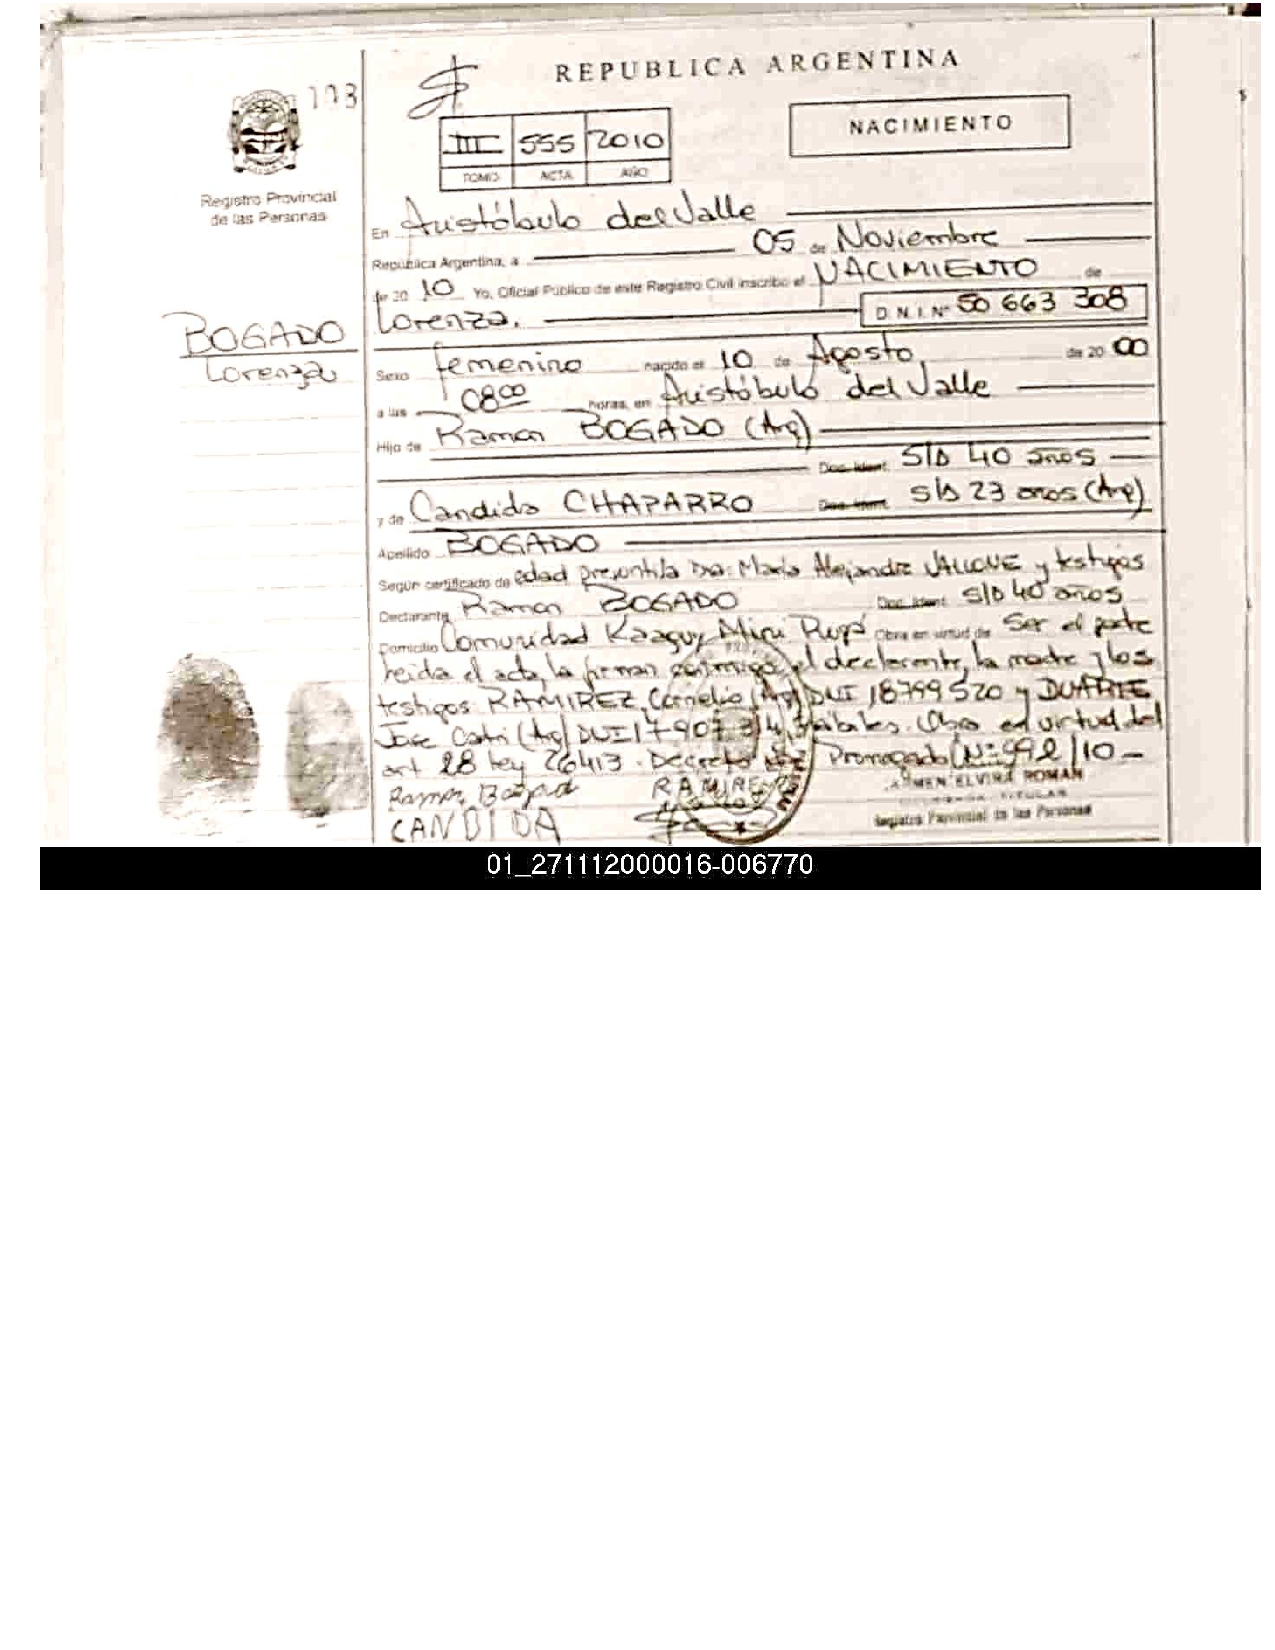 REPUBLICA ARGENTINA
193
III 555 2010
TOMO ACTA AÑO
NACIMIENTO
Registro Provincial
de las Personas
En Aristóbulo del Valle
República Argentina, a 05 de Noviembre
de 20 10 Yo, Oficial Público de este Registro Civil inscribo el NACIMIENTO de
Lorenza. D.N.I. Nº 50 663 308
BOGADO
Lorenza
Sexo femenino nacido el 10 de Agosto de 20 00
a las 08 00 horas, en Aristóbulo del Valle
Hijo de Ramon BOGADO (Arg)
Doc. Ident. S/D 40 años
y de Candida CHAPARRO Doc. Ident. S/D 23 años (Arg)
Apellido BOGADO
Según certificado de edad presuntiva Dra: María Alejandra y testigos
Declarante Ramon BOGADO Doc. Ident. S/D 40 años
Domicilio Comunidad Kaaguy Miri Rupá Obra en virtud de Ser el padre
Leida el acta, la firman conmigo, el declarante, la madre y los
testigos RAMIREZ, Cornelio (Arg) DNI 18799520 y DUARTE
Jose (Arg) DNI 17907314, Obra en virtud del
art 28 ley 26413. Decreto Prorrogado Nº 992/10-
Ramon Bogado RAMIREZ
CANDIDA
ELVIRA ROMAN
TITULAR
Registro Provincial de las Personas
01_271112000016-006770